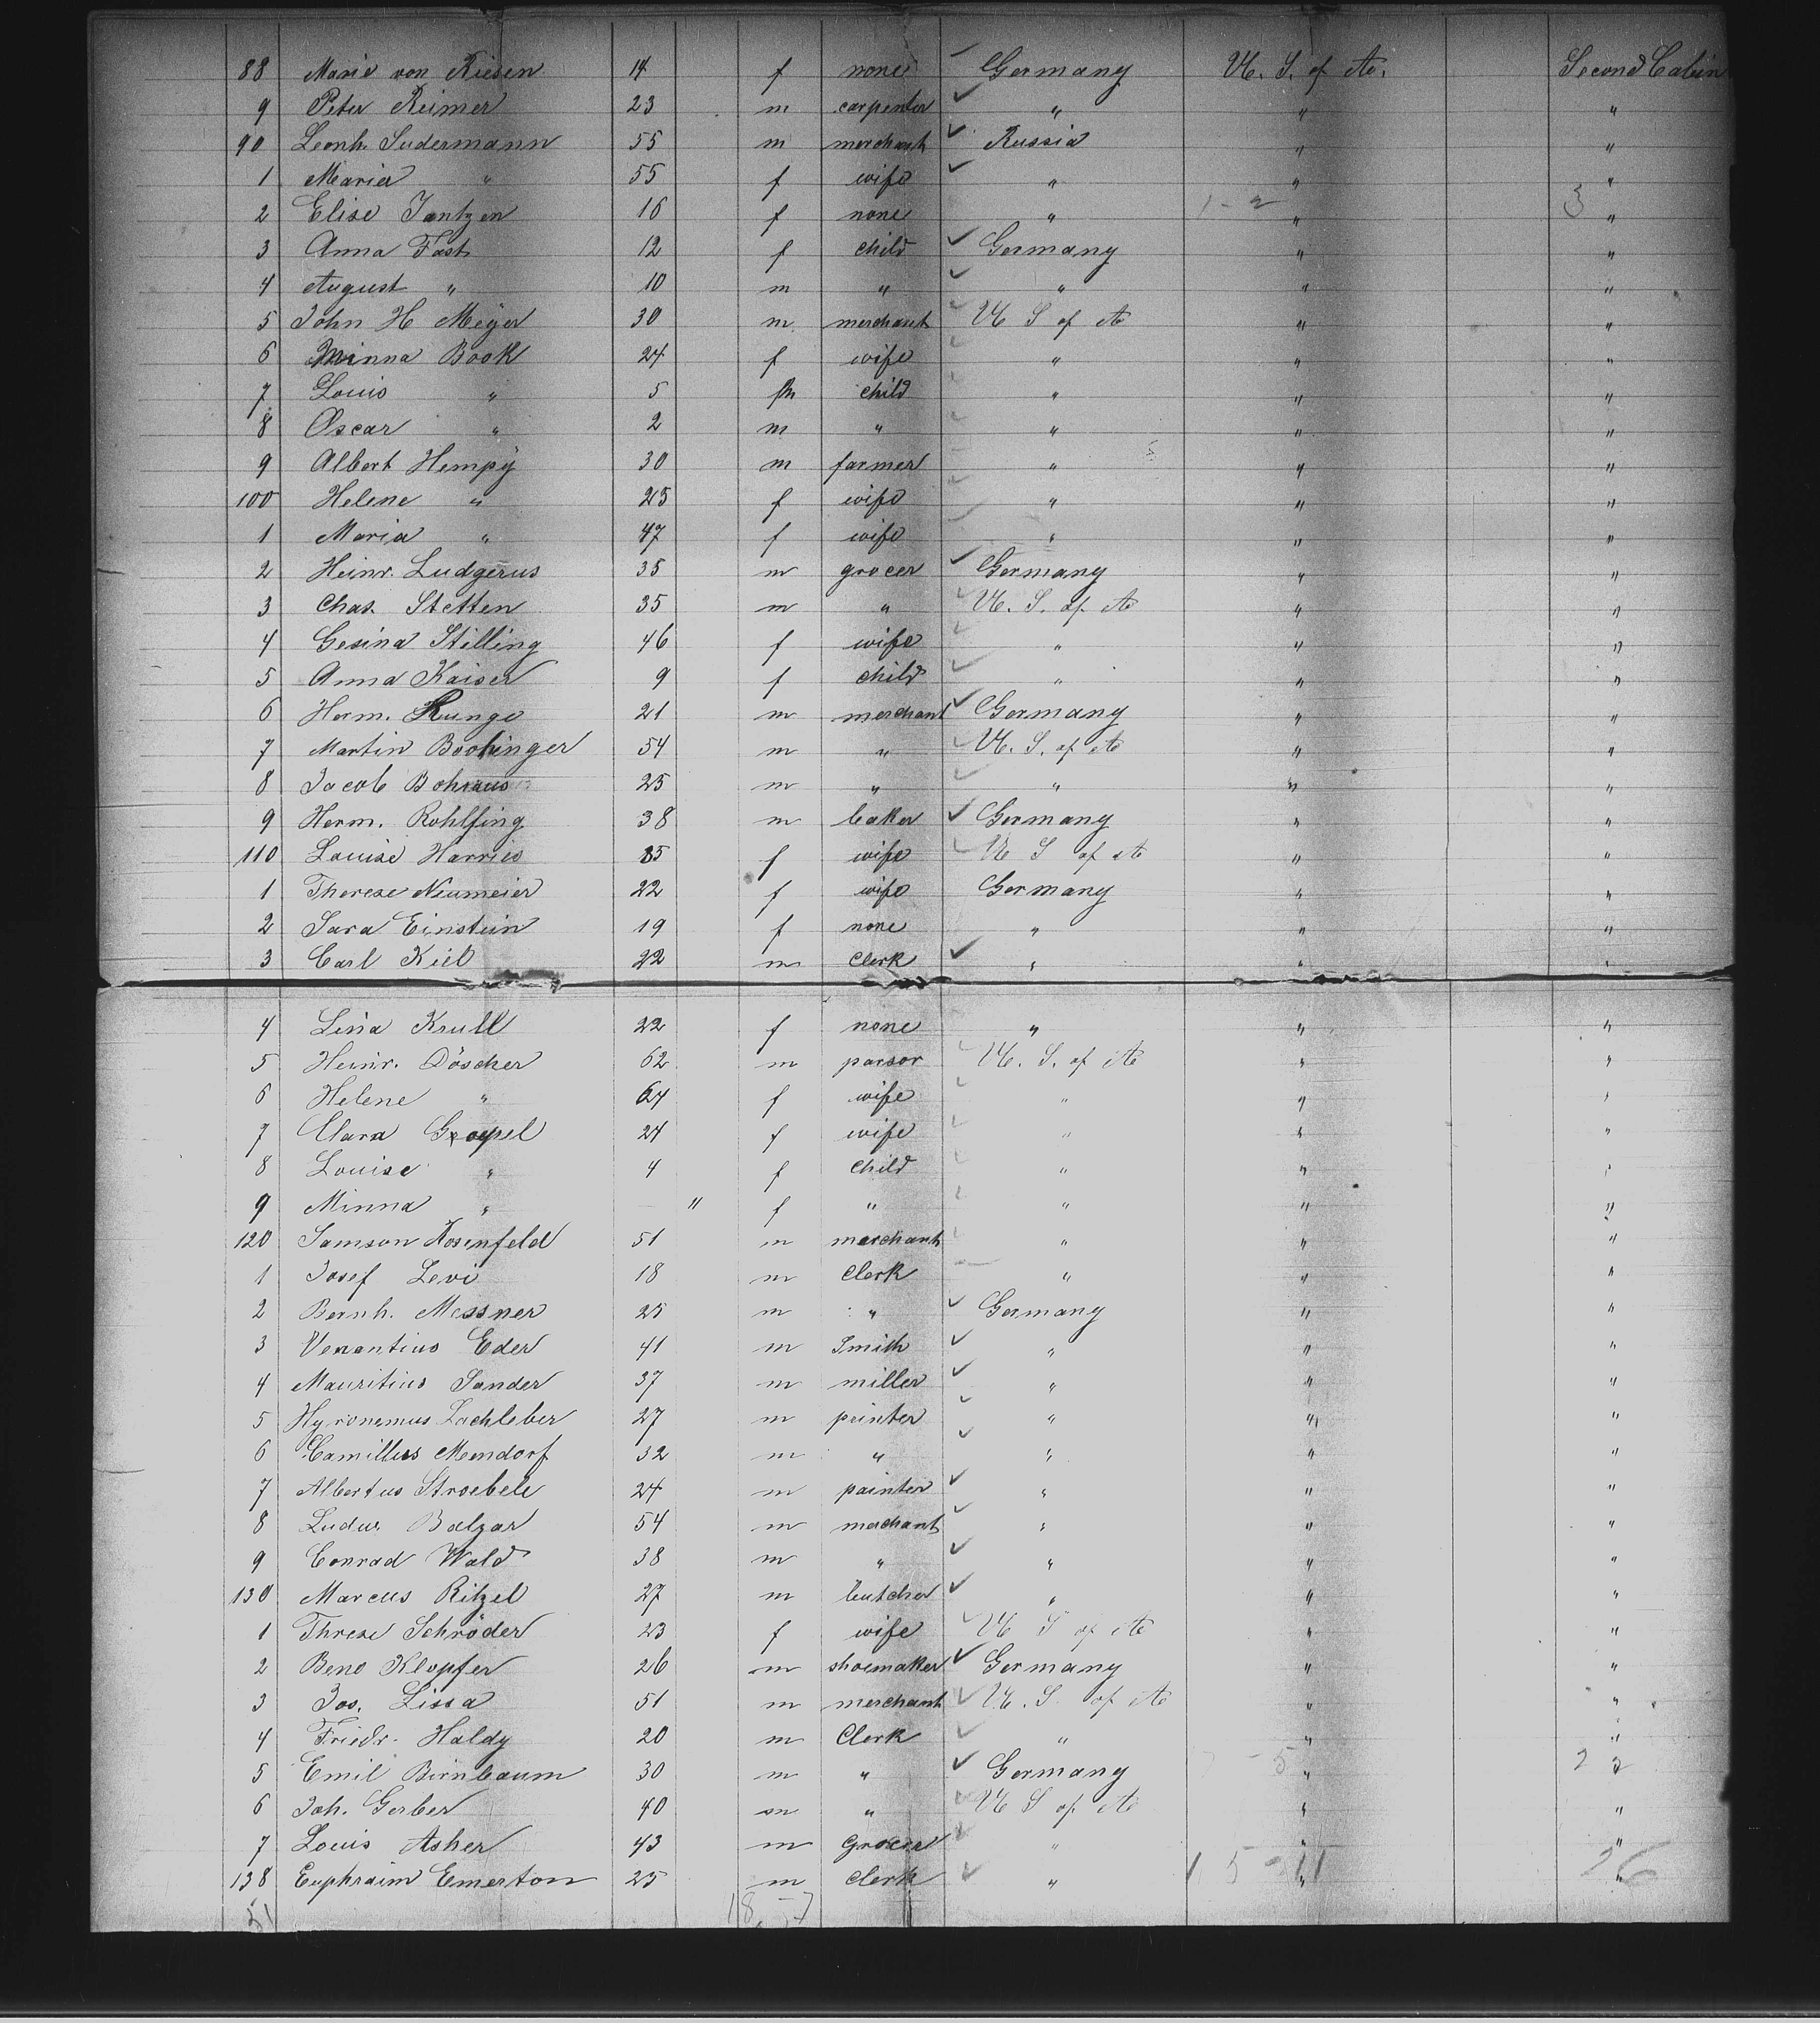 88 Marie von Riesen 14 f none Germany U. S. of A. Second Cabin
9 Peter Reimer 23 m carpenter " " "
90 Leonh. Sudermann 55 m merchant Russia " "
1 Maria " 55 f wife " " "
2 Elise Jantzen 16 f none " 1-2 " 3 "
3 Anna Fast 12 f child Germany " "
4 August " 10 m " " " "
5 John H Meyer 30 m merchant U S of A " "
6 Minna Book 24 f wife " " "
7 Louis " 5 m child " " "
8 Oscar " 2 m " " " "
9 Albert Hempÿ 30 m farmer " " "
100 Helene " 25 f wife " " "
1 Maria " 47 f wife " " "
2 Heinr. Ludgerus 35 m grocer Germany " "
3 Chas. Stetten 35 m " U. S. of A " "
4 Gesina Stilling 46 f wife " " "
5 Anna Kaiser 9 f child " " "
6 Herm. Runge 21 m merchant Germany " "
7 Martin 54 m " U. S. of A " "
8 Jacob 25 m " " " "
9 Herm. Rohlfing 38 m baker Germany " "
110 Louise Harries f wife U S of A " "
1 Therese Neumeier 22 f wife Germany " "
2 Sara Einstein 19 f none " " "
3 Carl Kiel 22 m Clerk " " "
4 Lina Krull 22 f none " " "
5 Heinr. Döscher 62 m parsor U. S. of A " "
6 Helene " 64 f wife " " "
7 Clara 24 f wife " " "
8 Louise " 4 f child " " "
9 Minna " " f " " " "
120 Samson Rosenfeld 51 m merchant " " "
1 Josef Levi 18 m Clerk " " "
2 Bernh. Messner 25 m " Germany " "
3 Venantius Eder 41 m Smith " " "
4 Mauritius Sander 37 m miller " " "
5 Hyronemus Lachleber 27 m printer " " "
6 Camillus Memdorf 32 m " " " "
7 Albertus Stroebele 24 m painter " " "
8 Ludw. Balzar 54 m merchant " " "
9 Conrad Wald 38 m " " " "
130 Marcus Ritzel 27 m butcher " " "
1 Threse Schröder 23 f wife U S of A " "
2 Beno Klopfer 26 m shoemaker Germany " "
3 Jos. Lissa 51 m merchant U. S. of A " "
4 Friedr. Haldy 20 m Clerk " " "
5 Emil Birnbaum 30 m " Germany " 2 2
6 Joh. Gerber 40 m " U S of A " "
7 Louis Asher 43 m Grocer " " "
138 Euphraim Emerton 25 m Clerk " " 26